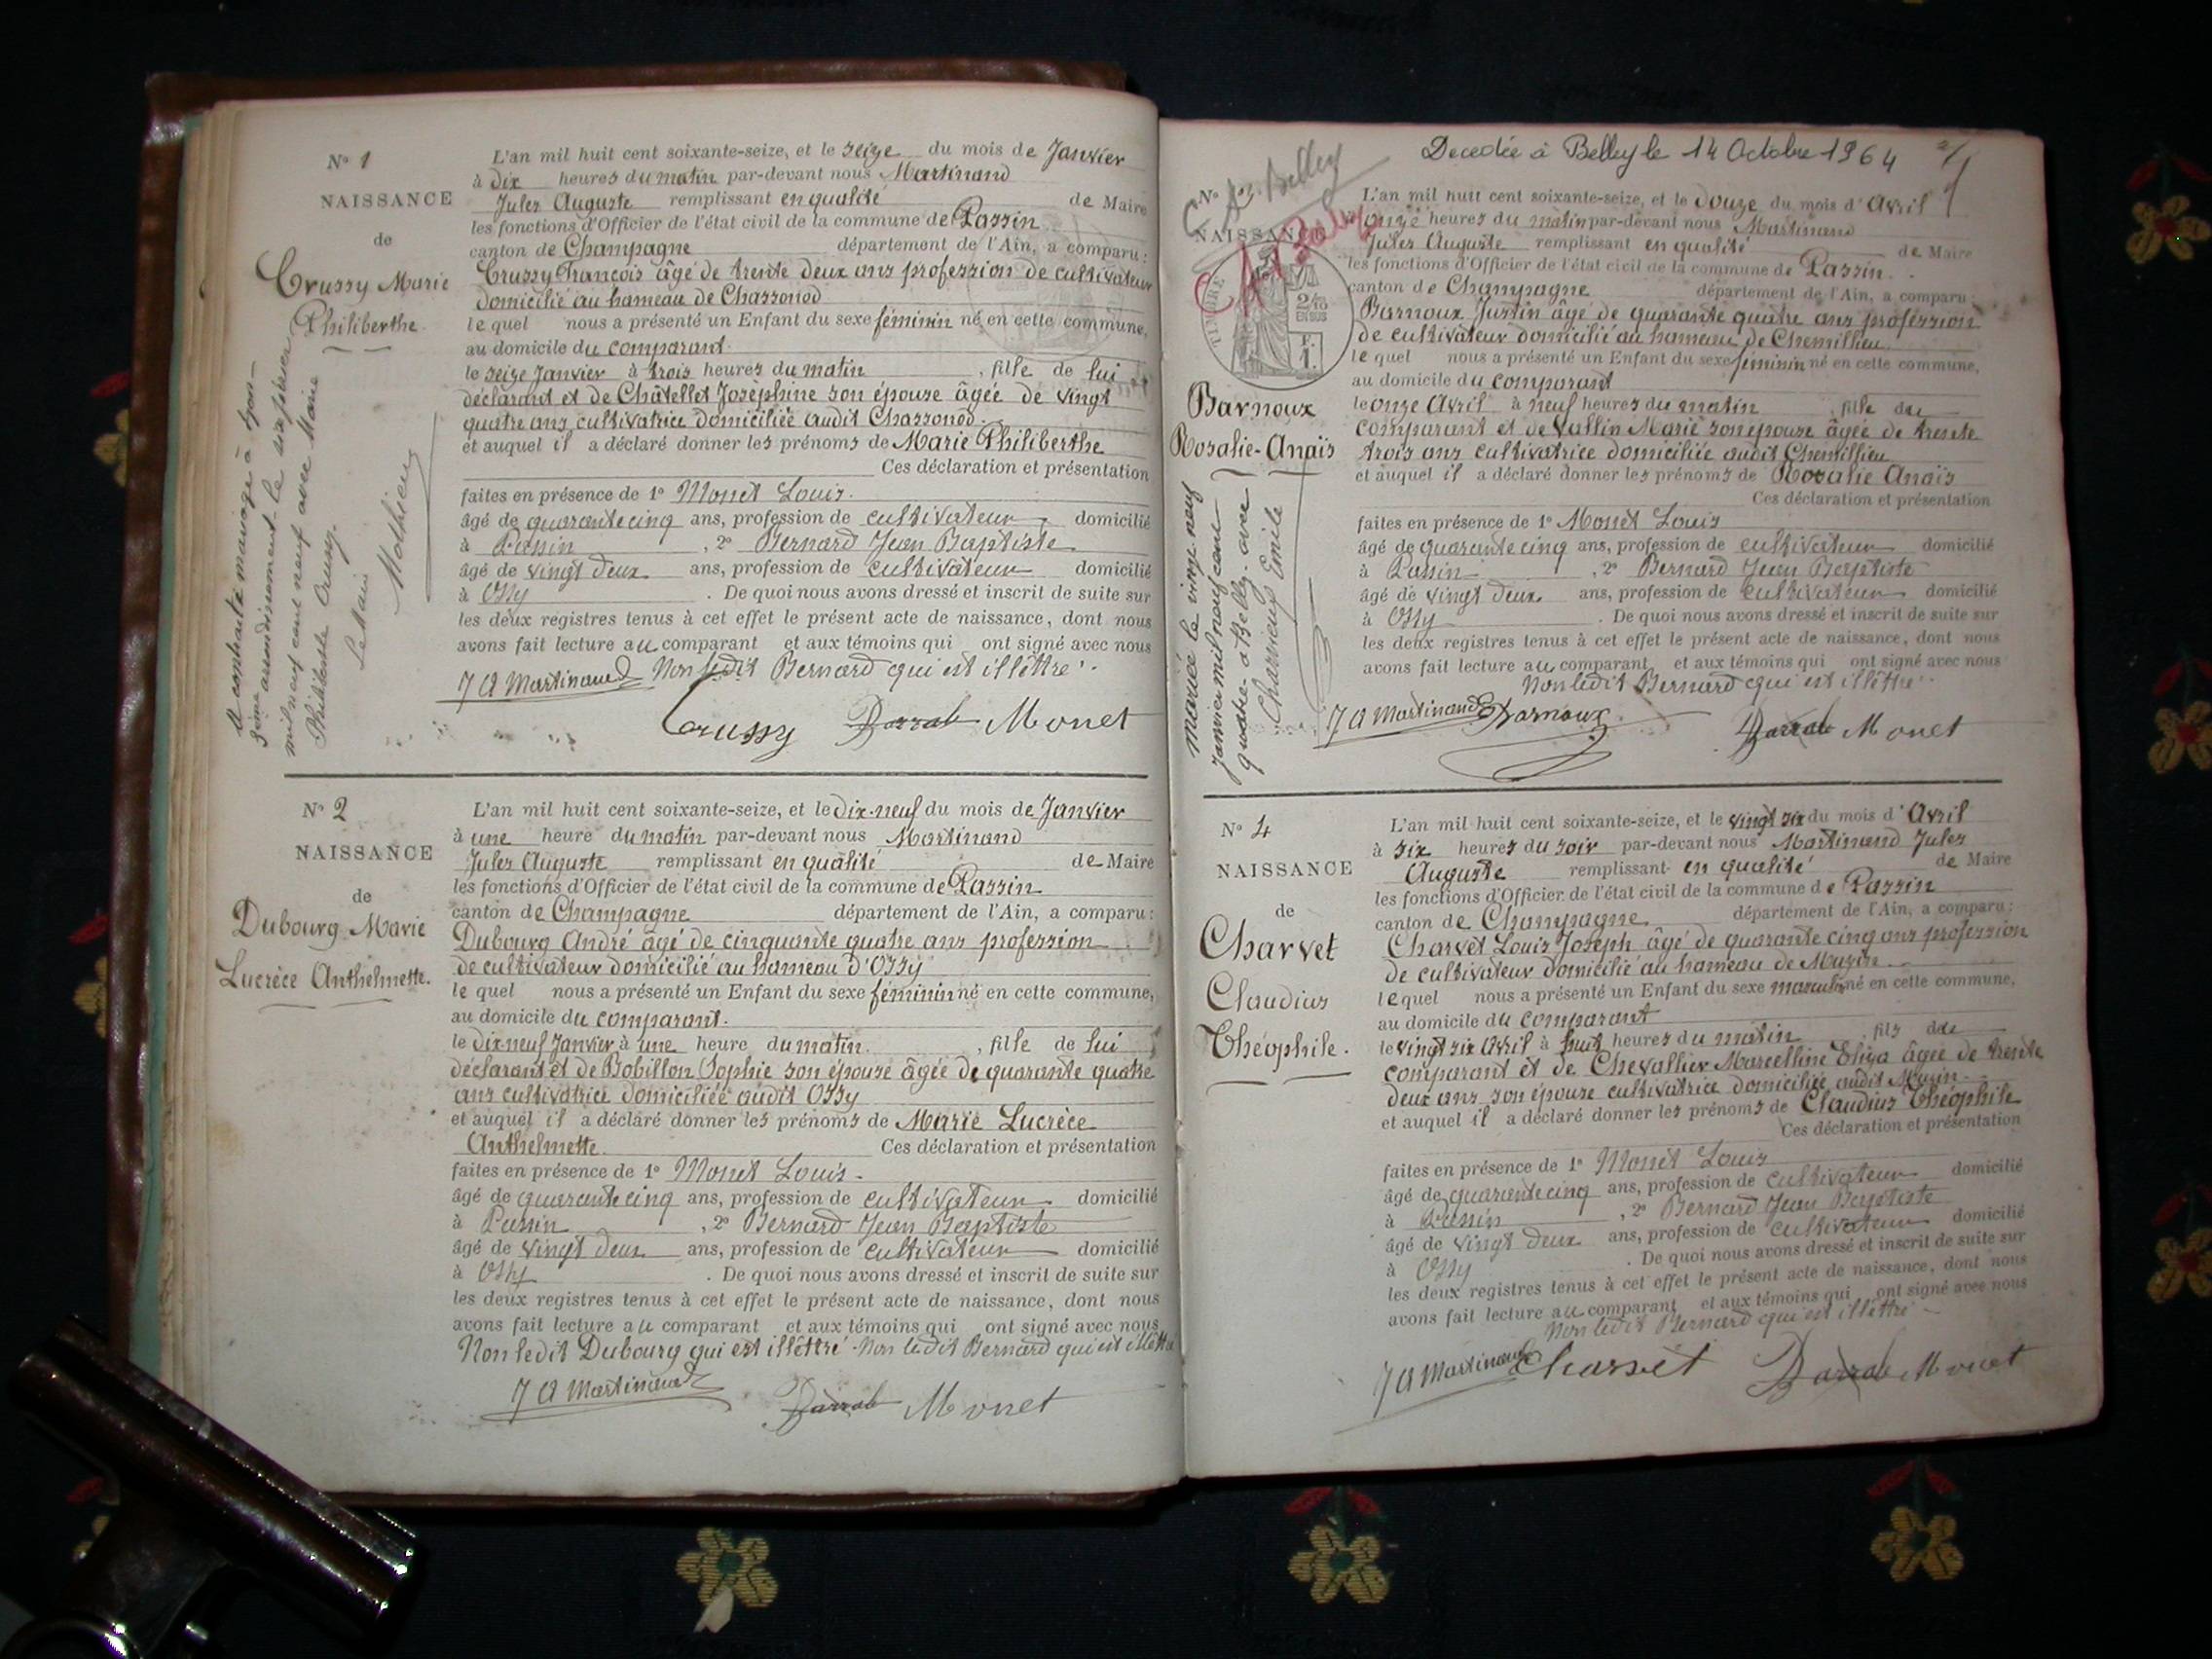 Nº 1
NAISSANCE
de
Crussy Marie
Philiberthe.
A contracté mariage à Lyon
3ème arrondissement le six février
mil neuf cent neuf avec Marie
Philiberthe Crussy.
Le Maire
L'an mil huit cent soixante-seize, et le seize du mois de Janvier
à dix heures du matin par-devant nous Martinand
Jules Auguste remplissant en qualité de Maire
les fonctions d'Officier de l'état civil de la commune de Passin
canton de Champagne département de l'Ain, a comparu:
Crussy François âgé de trente deux ans profession de cultivateur
domicilié au hameau de Chassonod
le quel nous a présenté un Enfant du sexe féminin né en cette commune,
au domicile du comparant.
le seize Janvier à trois heures du matin , fille de lui
déclarant et de Châtellet Josephine son épouse âgée de vingt
quatre ans cultivatrice domiciliée audit Chassonod.
et auquel il a déclaré donner les prénoms de Marie Philiberthe
Ces déclaration et présentation
faites en présence de 1º Monet Louis.
âgé de quarante cinq ans, profession de cultivateur domicilié
à Passin , 2º Bernard Jean Baptiste
âgé de vingt deux ans, profession de cultivateur domicilié
à Ossy . De quoi nous avons dressé et inscrit de suite sur
les deux registres tenus à cet effet le présent acte de naissance, dont nous
avons fait lecture au comparant et aux témoins qui ont signé avec nous
Non ledit Bernard qui est illêttré.
J A Martinand Crussy Monet
Nº 2
NAISSANCE
de
Dubourg Marie
Lucrèce Anthelmette.
L'an mil huit cent soixante-seize, et le dix-neuf du mois de Janvier
à une heure du matin par-devant nous Martinand
Jules Auguste remplissant en qualité de Maire
les fonctions d'Officier de l'état civil de la commune de Passin
canton de Champagne département de l'Ain, a comparu:
Dubourg André âgé de cinquante quatre ans profession
de cultivateur domicilié au hameau d'Ossy
le quel nous a présenté un Enfant du sexe féminin né en cette commune,
au domicile du comparant.
le dix neuf Janvier à une heure du matin. , fille de lui
déclarant et de Bobillon Sophie son épouse âgée de quarante quatre
ans cultivatrice domiciliée audit Ossy
et auquel il a déclaré donner les prénoms de Marie Lucrèce
Anthelmette. Ces déclaration et présentation
faites en présence de 1º Monet Louis.
âgé de quarante cinq ans, profession de cultivateur domicilié
à Passin , 2º Bernard Jean Baptiste
âgé de vingt deux ans, profession de cultivateur domicilié
à Ossy . De quoi nous avons dressé et inscrit de suite sur
les deux registres tenus à cet effet le présent acte de naissance, dont nous
avons fait lecture au comparant et aux témoins qui ont signé avec nous
Non ledit Dubourg qui est illêttré. Non ledit Bernard qui est illêttré
J A Martinand Monet
Decedée à Belley le 14 Octobre 1964
Nº
NAISSANCE
Belley
TIMBRE
2/10
EN SUS
Barnoux
Rosalie-Anaïs
Mariée le vingt neuf
janvier mil neuf cent
quatre à Belley avec
Emile
L'an mil huit cent soixante-seize, et le douze du mois d'Avril
onze heures du matin par-devant nous Martinand
Jules Auguste remplissant en qualité de Maire
les fonctions d'Officier de l'état civil de la commune de Passin.
canton de Champagne département de l'Ain, a comparu:
Barnoux Justin âgé de quarante quatre ans profession
de cultivateur domicilié au hameau de Chemillieu
le quel nous a présenté un Enfant du sexe féminin né en cette commune,
au domicile du comparant
le onze Avril à neuf heures du matin fille du
comparant et de Vallin Marie son épouse âgée de trente
trois ans cultivatrice domiciliée audit Chemillieu
et auquel il a déclaré donner les prénoms de Rosalie Anaïs
Ces déclaration et présentation
faites en présence de 1º Monet Louis
âgé de quarante cinq ans, profession de cultivateur domicilié
à Passin , 2º Bernard Jean Baptiste
âgé de vingt deux ans, profession de cultivateur domicilié
à Ossy . De quoi nous avons dressé et inscrit de suite sur
les deux registres tenus à cet effet le présent acte de naissance, dont nous
avons fait lecture au comparant et aux témoins qui ont signé avec nous
Non ledit Bernard qui est illêttré.
J A Martinand Barnoux Monet
Nº 4
NAISSANCE
de
Charvet
Claudius
Théophile.
L'an mil huit cent soixante-seize, et le vingt six du mois d'Avril
à six heures du soir par-devant nous Martinand Jules
Auguste remplissant en qualité de Maire
les fonctions d'Officier de l'état civil de la commune de Passin
canton de Champagne département de l'Ain, a comparu:
Charvet Louis Joseph âgé de quarante cinq ans profession
de cultivateur domicilié au hameau de Muzin.
le quel nous a présenté un Enfant du sexe masculin né en cette commune,
au domicile du comparant
le vingt six Avril à huit heures du matin , fils du
comparant et de Chevallier Marcelline Eliza âgée de trente
deux ans son épouse cultivatrice domiciliée audit Muzin
et auquel il a déclaré donner les prénoms de Claudius Théophile
Ces déclaration et présentation
faites en présence de 1º Monet Louis
âgé de quarante cinq ans, profession de cultivateur domicilié
à Passin , 2º Bernard Jean Baptiste
âgé de vingt deux ans, profession de cultivateur domicilié
à Ossy . De quoi nous avons dressé et inscrit de suite sur
les deux registres tenus à cet effet le présent acte de naissance, dont nous
avons fait lecture au comparant et aux témoins qui ont signé avec nous
Non ledit Bernard qui est illêttré
J A Martinand Charvet Monet